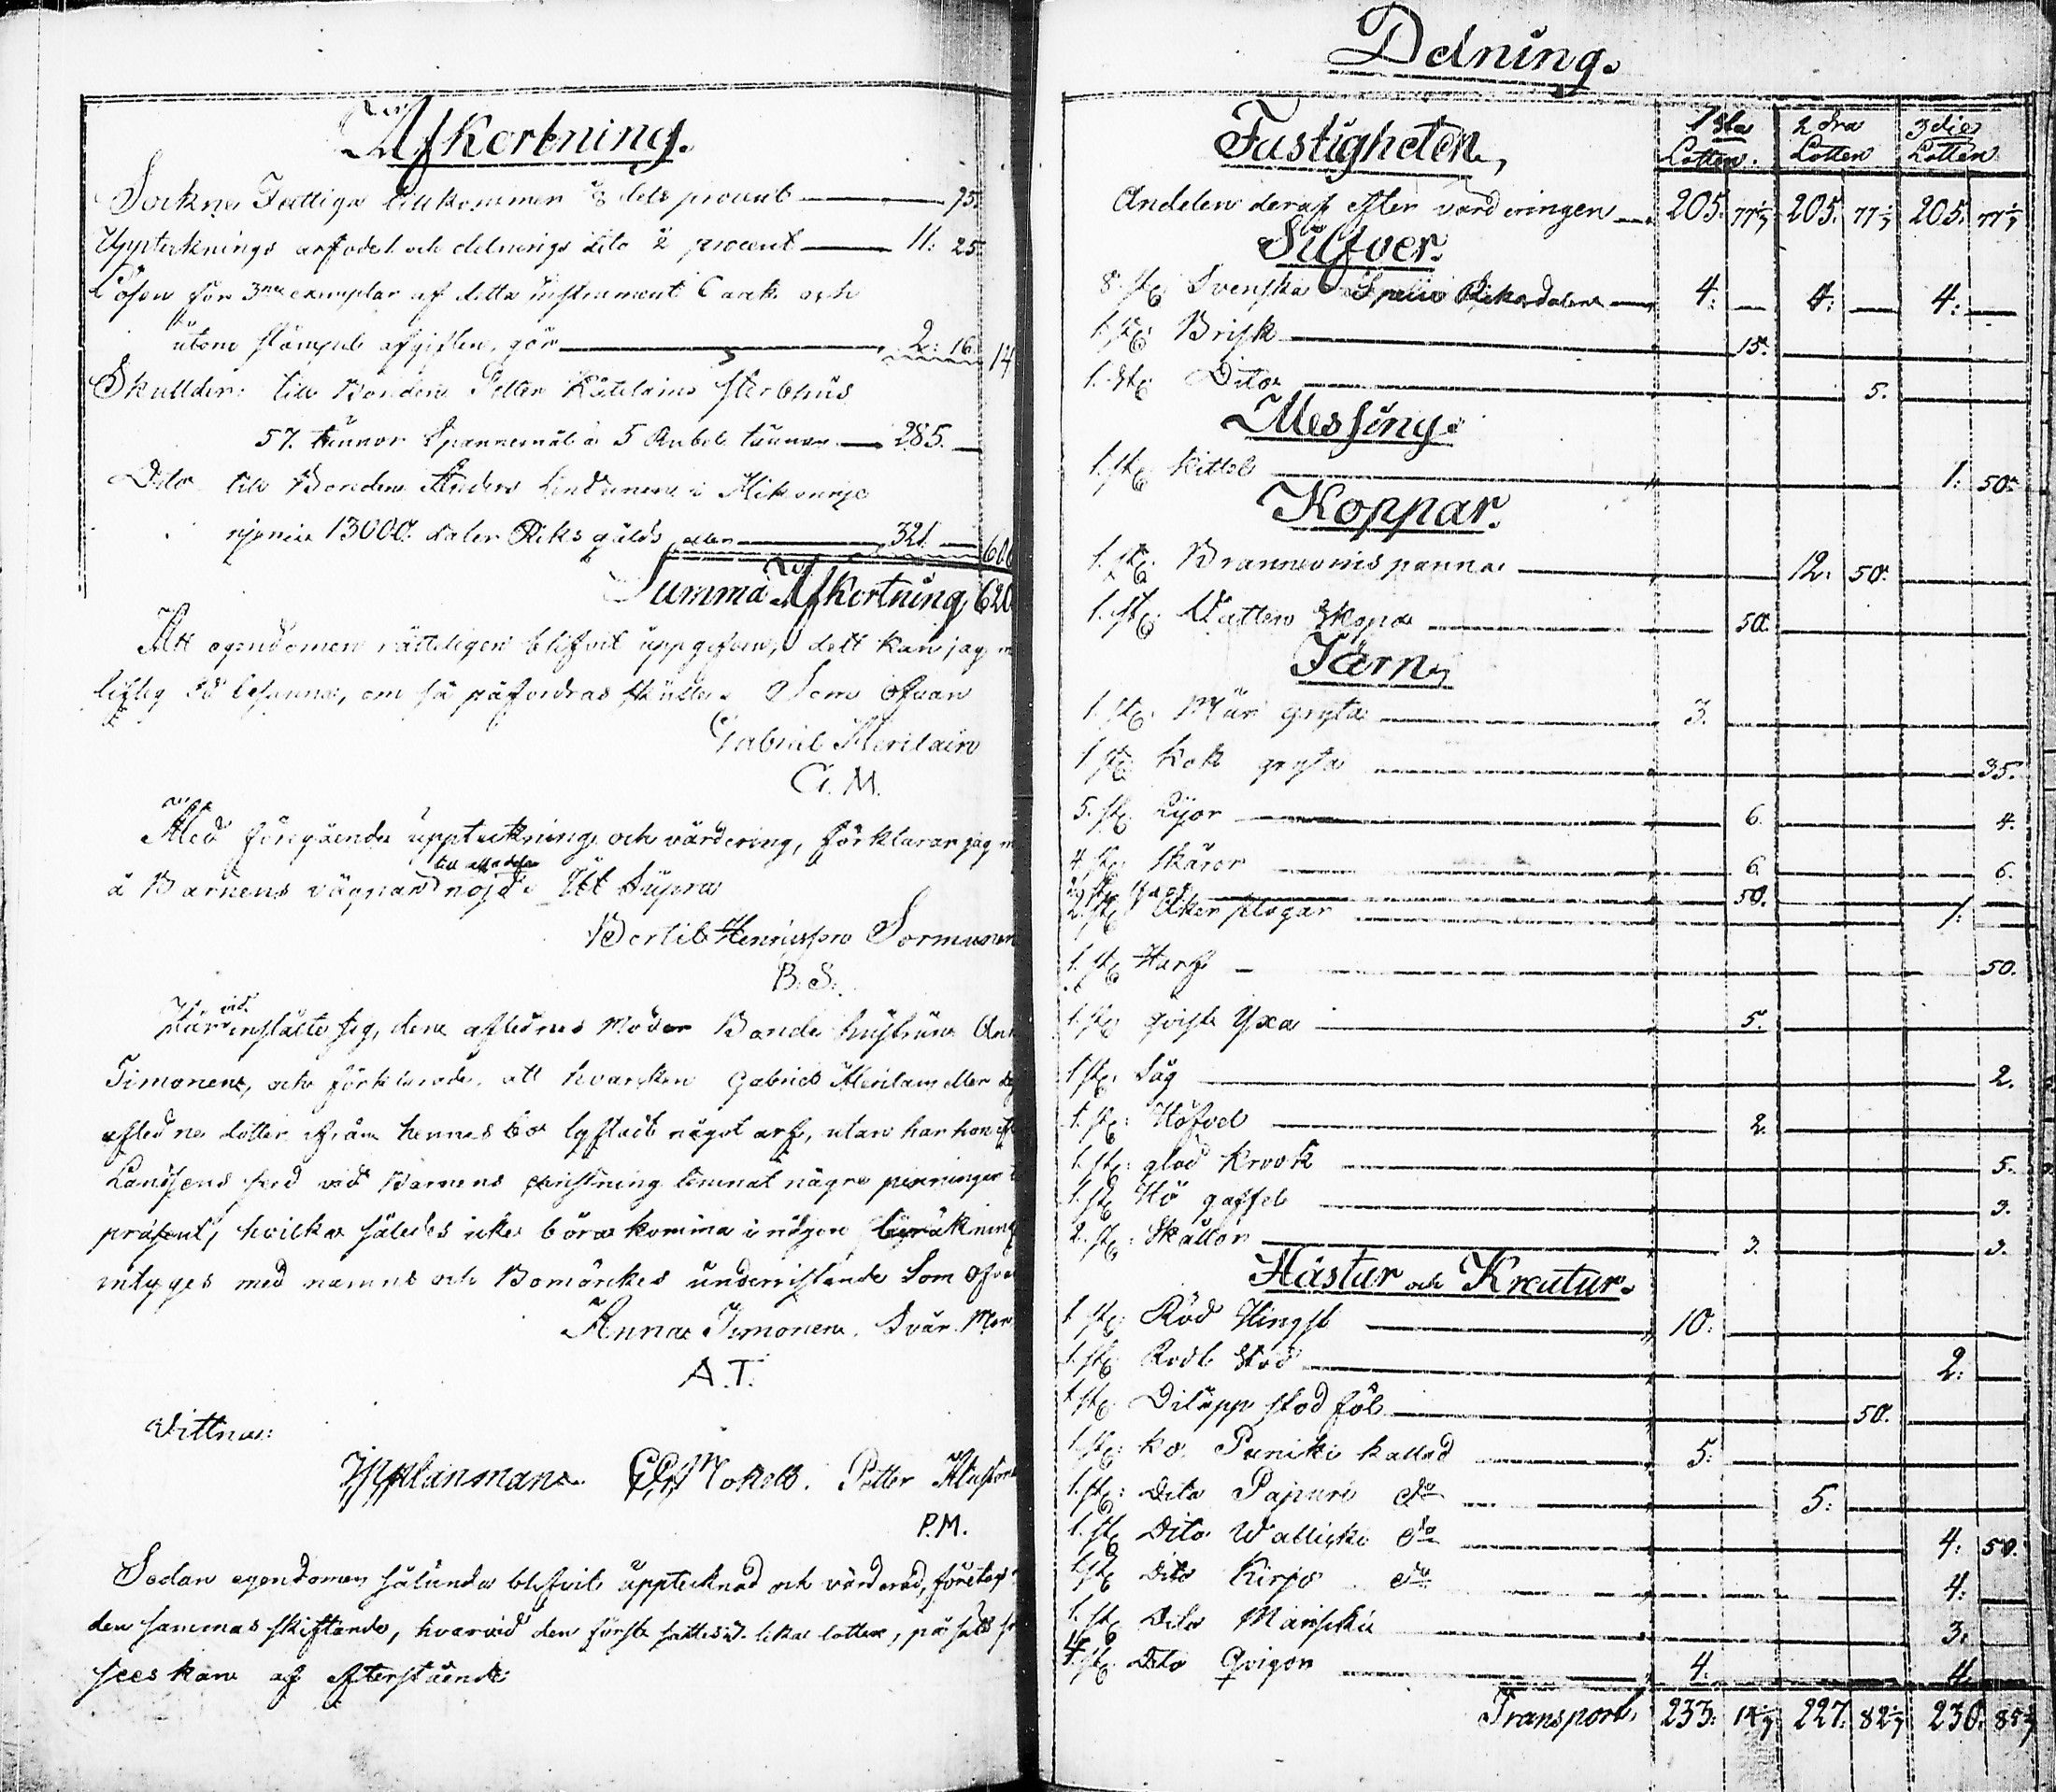 Afkortning.
Sokne Fattiga tillkommer 1/8 dels procent — 75.
Upptecknings arfodet och delnings dito 2 procent — 11: 25.
Lösen för 3ne exemplar af detta instrument Caret. och
utom stämpel afgiften, gör — 2: 16. 14
Skullder: till Bonden Petter sterbhus
57. tunnor Spannemål à 5 Rubel tunnan — 285. —
Dito till Bonden Anders i
13000. daler Riksgälds — 321. — 606
Summa Afkortning, 620
Att egendomen rätteligen blifvit uppgifven, dett kan jag
Ed besanna, om så påfordras skulle. Som ofvan
Gabriel Meriläin
G. M.
Med föregående uppteckning och värdering, förklarar jag
till alla delar
å Barnens vägnar nöjd. Ut Supra
Bertil Henricsson Sormunen
B. S.
vid
Här inställte sig, den aflednes Moder Bonde hustrun
Timonen, och förklarade, att hvarcken Gabriel Meriläin eller
afledne dotter ifrån hennes bo lyftadt något arf, utan har hon
Landsens sed vid Barnens christning lemnat några penningar
present, hvilka således icke böra komma i någon uträkning
intyges med namns och Bomärckes underristande Som ofvan
Anna Timonen. Svär Mor
A.T.
Vittna:
Petter
P.M.
Sedan egendomen sålunda blifvit upptecknad och värderad, företogs
den sammas skiftande, hvarvid den först sattes i 7. lika lotter, på sätt
sees kan af efterstående
Delning.
Fastigheten, 1sta Lotten. 2dra Lotten 3die Lotten
Andelen deraf efter värderingen — 205. 77 1/7 205. 77 1/7 205. 77 1/7
Silfver.
8. st: Svenska Specie Riksdaler — 4: — 4: — 4: —
1. st: Brisk — 15.
1. st: Dito — 5.
Messing.
1. st: Kittel — 1. 50.
Koppar.
1. st: Brännvins panna — 12: 50.
1. st: Vatten Skopa — 50.
Järn,
1. st: Mur gryta — 3.
1 st: Kok gryta — 35.
5. st: Lyor — 6. 4.
4. st: Skäror — 6. 6.
50.
2. st: Åker plogar — 1: —
1. st: Harf — 50.
1. st: qvist Yxa — 5.
1 st: Såg — 2.
1. st: Höfvel — 2.
1. st: glöd Krook — 5.
1. st: Hö gaffel — 3.
2. st: Skållor — 3. 3.
Hästar och Kreatur.
1 st: Röd Hingst — 10:
1. st: Rödt Stod — 2: —
1 st: Dit upp stod föl — 50.
1. st: Ko Puniki kallad — 5:
1. st: Dito Papuri do — 5:
1. st: Dito Wallicki do — 4: 50.
1 st: Dito Kirjo do — 4: —
1. st: Dito Mansicki — 3. —
4. st: Dito Qvigon — 4. 4.
Transport. 233: 227: 82 230. 85